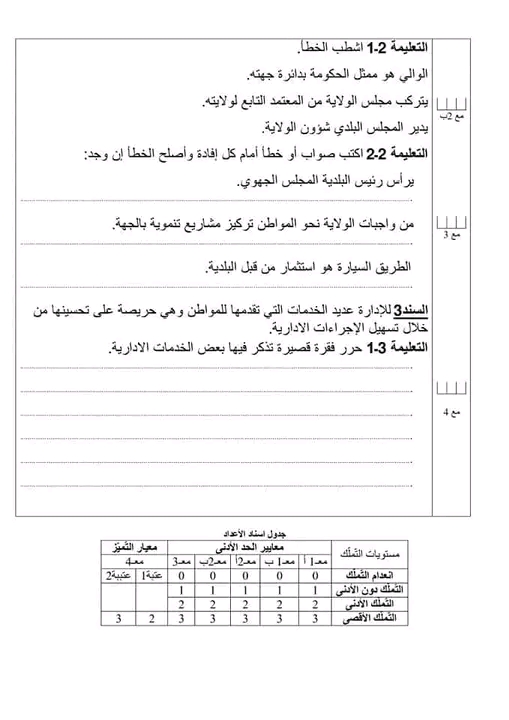 التعليمة 2-1 اشطب الخطأ.
الوالي هو ممثل الحكومة بدائرة جهته.
يتركب مجلس الولاية من المعتمد التابع لولايته.
مع 2ب
يدير المجلس البلدي شؤون الولاية.
التعليمة 2-2 اكتب صواب أو خطأ أمام كل إفادة وأصلح الخطأ إن وجد:
يرأس رئيس البلدية المجلس الجهوي.
من واجبات الولاية نحو المواطن تركيز مشاريع تنموية بالجهة.
مع 3
الطريق السيارة هو استثمار من قبل البلدية.
السند3 للإدارة عديد الخدمات التي تقدمها للمواطن وهي حريصة على تحسينها من
خلال تسهيل الإجراءات الادارية.
التعليمة 3-1 حرر فقرة قصيرة تذكر فيها بعض الخدمات الادارية.
مع 4
جدول اسناد الأعداد
مستويات التملّك معايير الحد الأدنى معيار التّميّز
معـ1 أ معـ1 ب معـ2أ معـ2ب معـ3 معـ4
انعدام التّملّك 0 0 0 0 0 عتبة1 عتبية2
التّملّك دون الأدنى 1 1 1 1 1
التّملّك الأدنى 2 2 2 2 2
التّملّك الأقصى 3 3 3 3 3 2 3